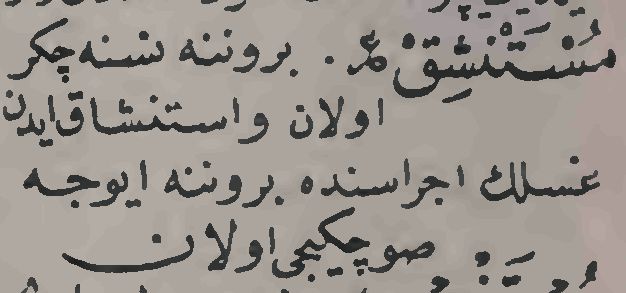 مُسْتَنْشِقْ عر. بروننه نسنه چكر
اولان واستنشاق ايدن
غسلك اجراسنده بروننه ايوجه
صو چكيجى اولان